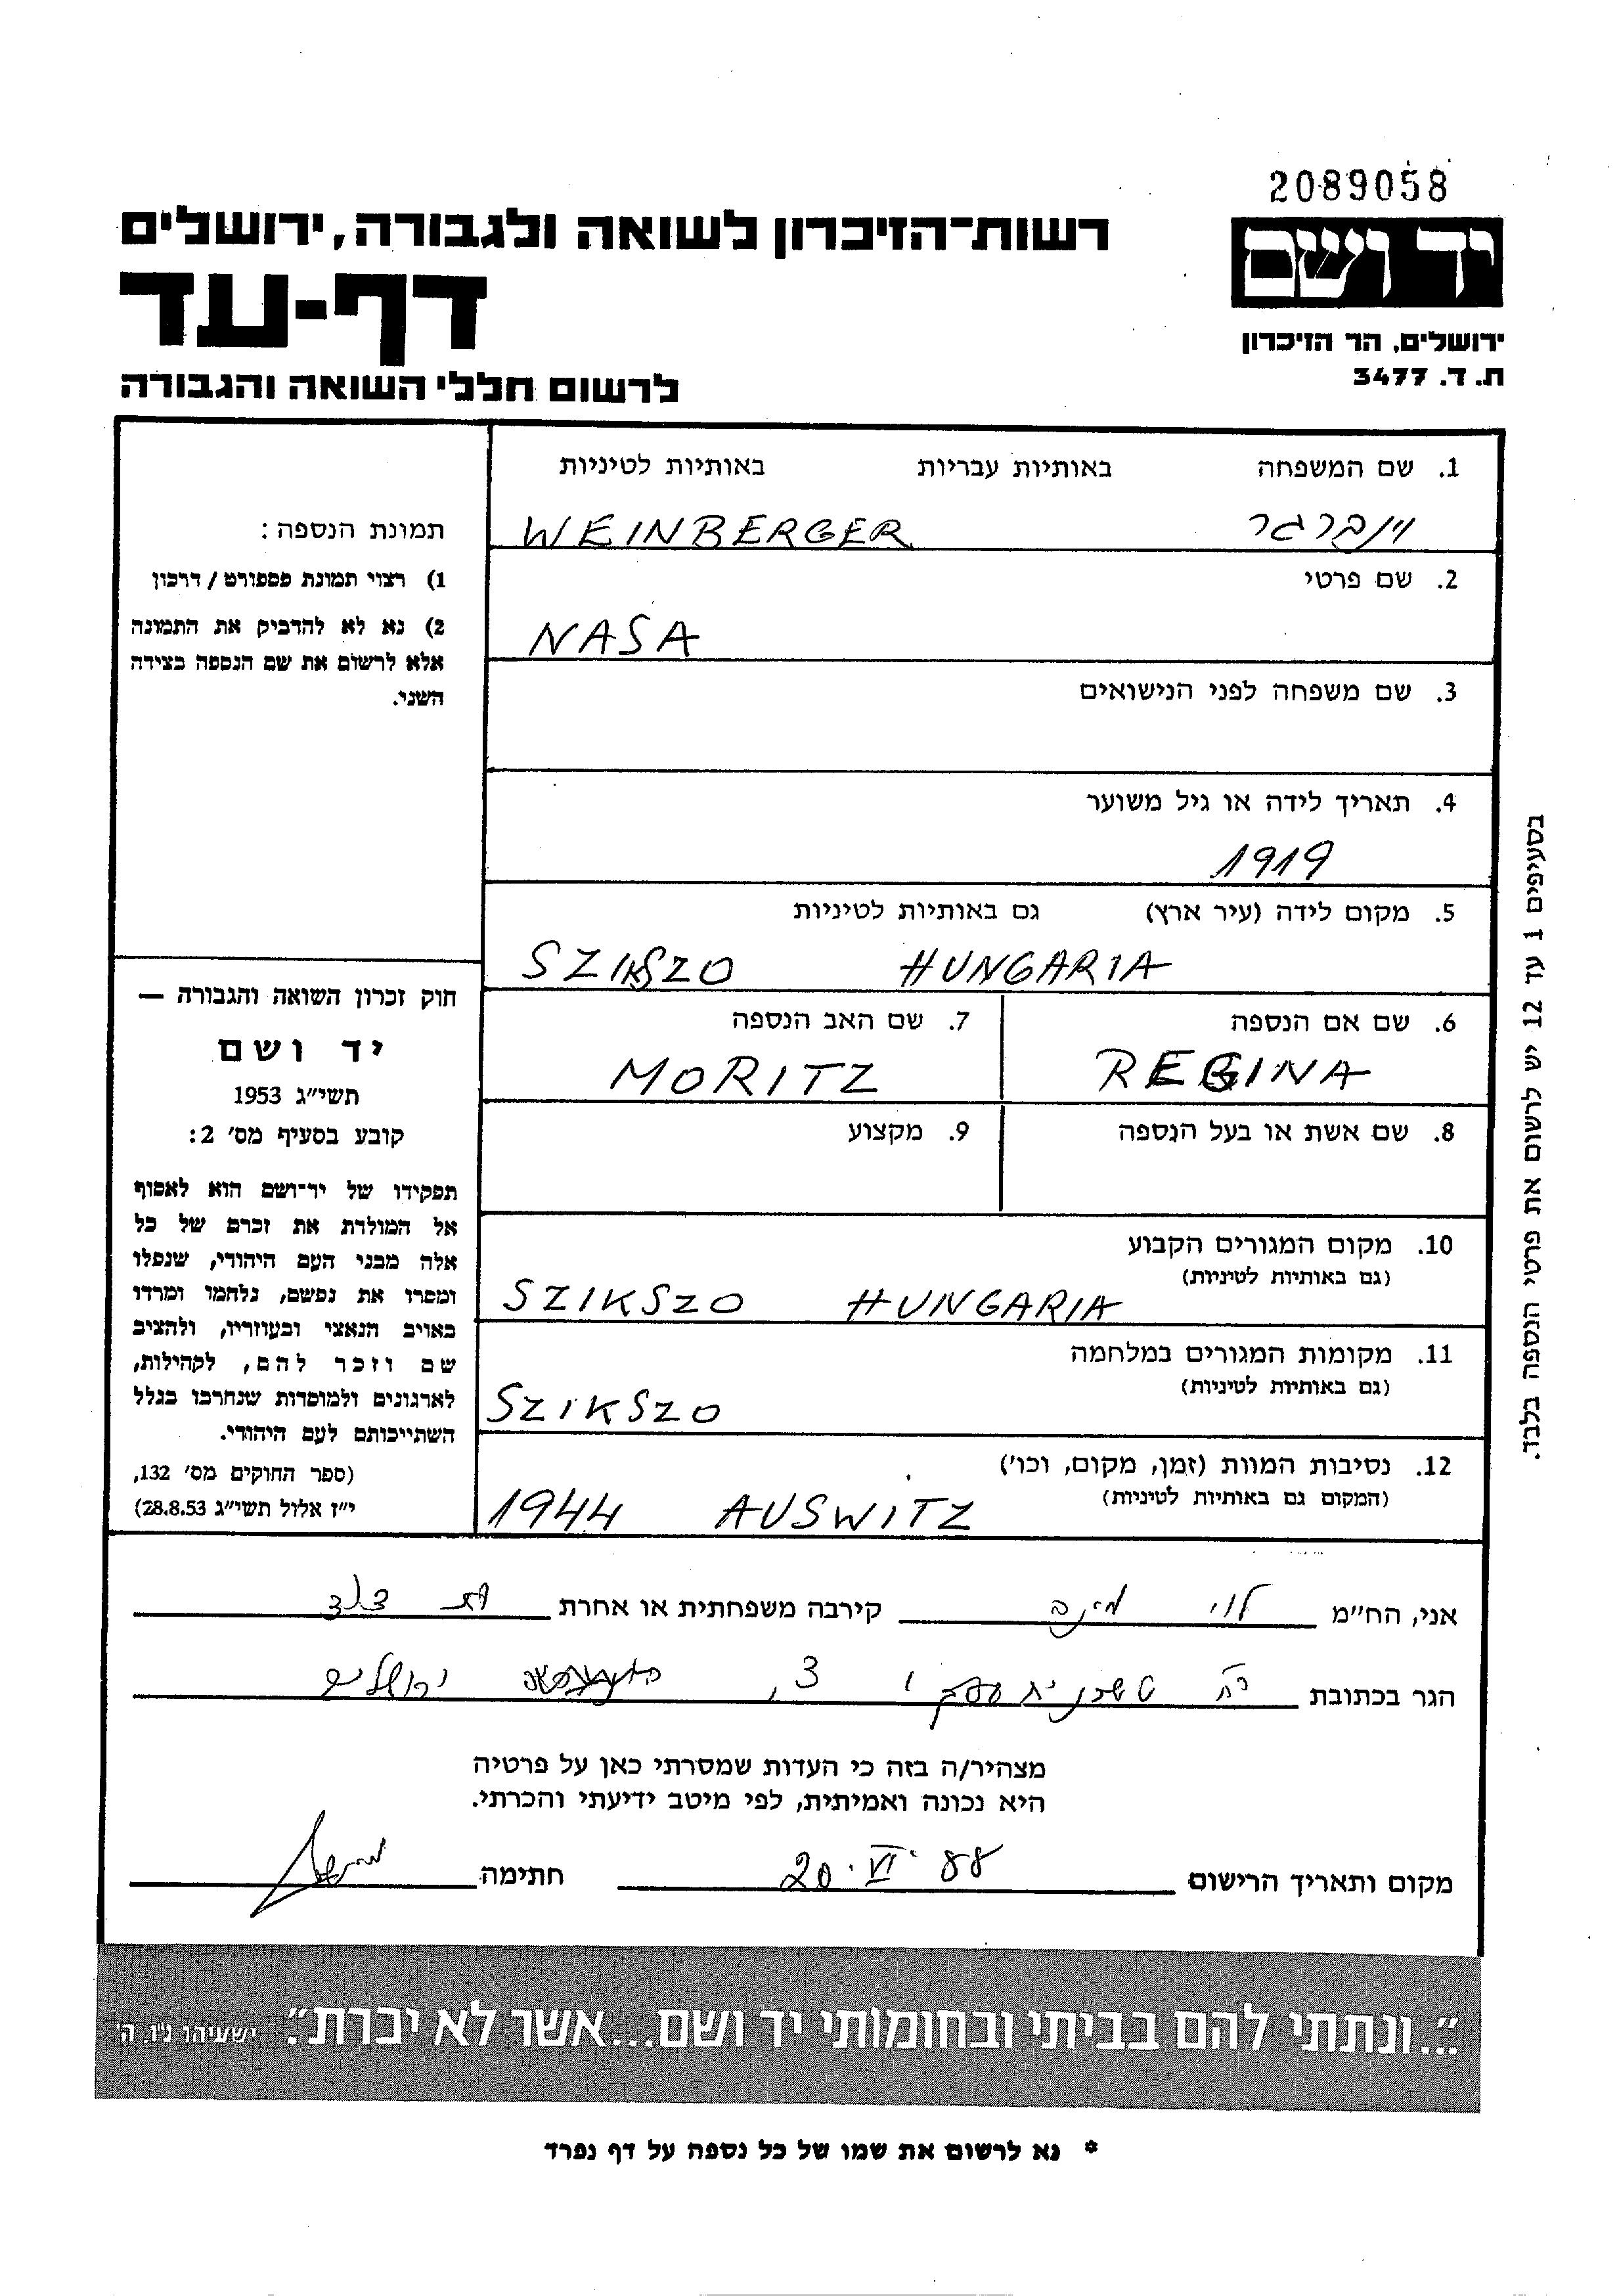 2089058
יד ושם
ירושלים, הר הזיכרון
ת. ד. 3477
רשות־הזיכרון לשואה ולגבורה, ירושלים
דף-עד
לרשום חללי השואה והגבורה
1. שם המשפחה באותיות עבריות באותיות לטיניות
וינברגר WEINBERGER
2. שם פרטי
NASA
3. שם משפחה לפני הנישואים
4. תאריך לידה או גיל משוער
1919
5. מקום לידה (עיר ארץ) גם באותיות לטיניות
SZIKSZO HUNGARIA
6. שם אם הנספה
REGINA
7. שם האב הנספה
MORITZ
8. שם אשת או בעל הנספה
9. מקצוע
10. מקום המגורים הקבוע
(גם באותיות לטיניות)
SZIKSZO HUNGARIA
11. מקומות המגורים במלחמה
(גם באותיות לטיניות)
SZIKSZO
12. נסיבות המוות (זמן, מקום, וכו')
(המקום גם באותיות לטיניות)
1944 AUSWITZ
תמונת הנספה:
1) רצוי תמונת פספורט / דרכון
2) נא לא להדביק את התמונה
אלא לרשום את שם הנספה בצידה
השני.
חוק זכרון השואה והגבורה —
יד ושם
תשי״ג 1953
קובע בסעיף מס' 2:
תפקידו של יד־ושם הוא לאסוף
אל המולדת את זכרם של כל
אלה מבני העם היהודי, שנפלו
ומסרו את נפשם, נלחמו ומרדו
באויב הנאצי ובעוזריו, ולהציב
שם וזכר להם, לקהילות,
לארגונים ולמוסדות שנחרבו בגלל
השתייכותם לעם היהודי.
(ספר החוקים מס' 132,
י״ז אלול תשי״ג 28.8.53)
בסעיפים 1 עד 12 יש לרשום את פרטי הנספה בלבד.
אני, הח״מ לוי קירבה משפחתית או אחרת
הגר בכתובת 3, ירושלים
מצהיר/ה בזה כי העדות שמסרתי כאן על פרטיה
היא נכונה ואמיתית, לפי מיטב ידיעתי והכרתי.
מקום ותאריך הרישום 20.VI.88 חתימה
״...ונתתי להם בביתי ובחומותי יד ושם...אשר לא יכרת״. ישעיהו נ״ו, ה'
* נא לרשום את שמו של כל נספה על דף נפרד